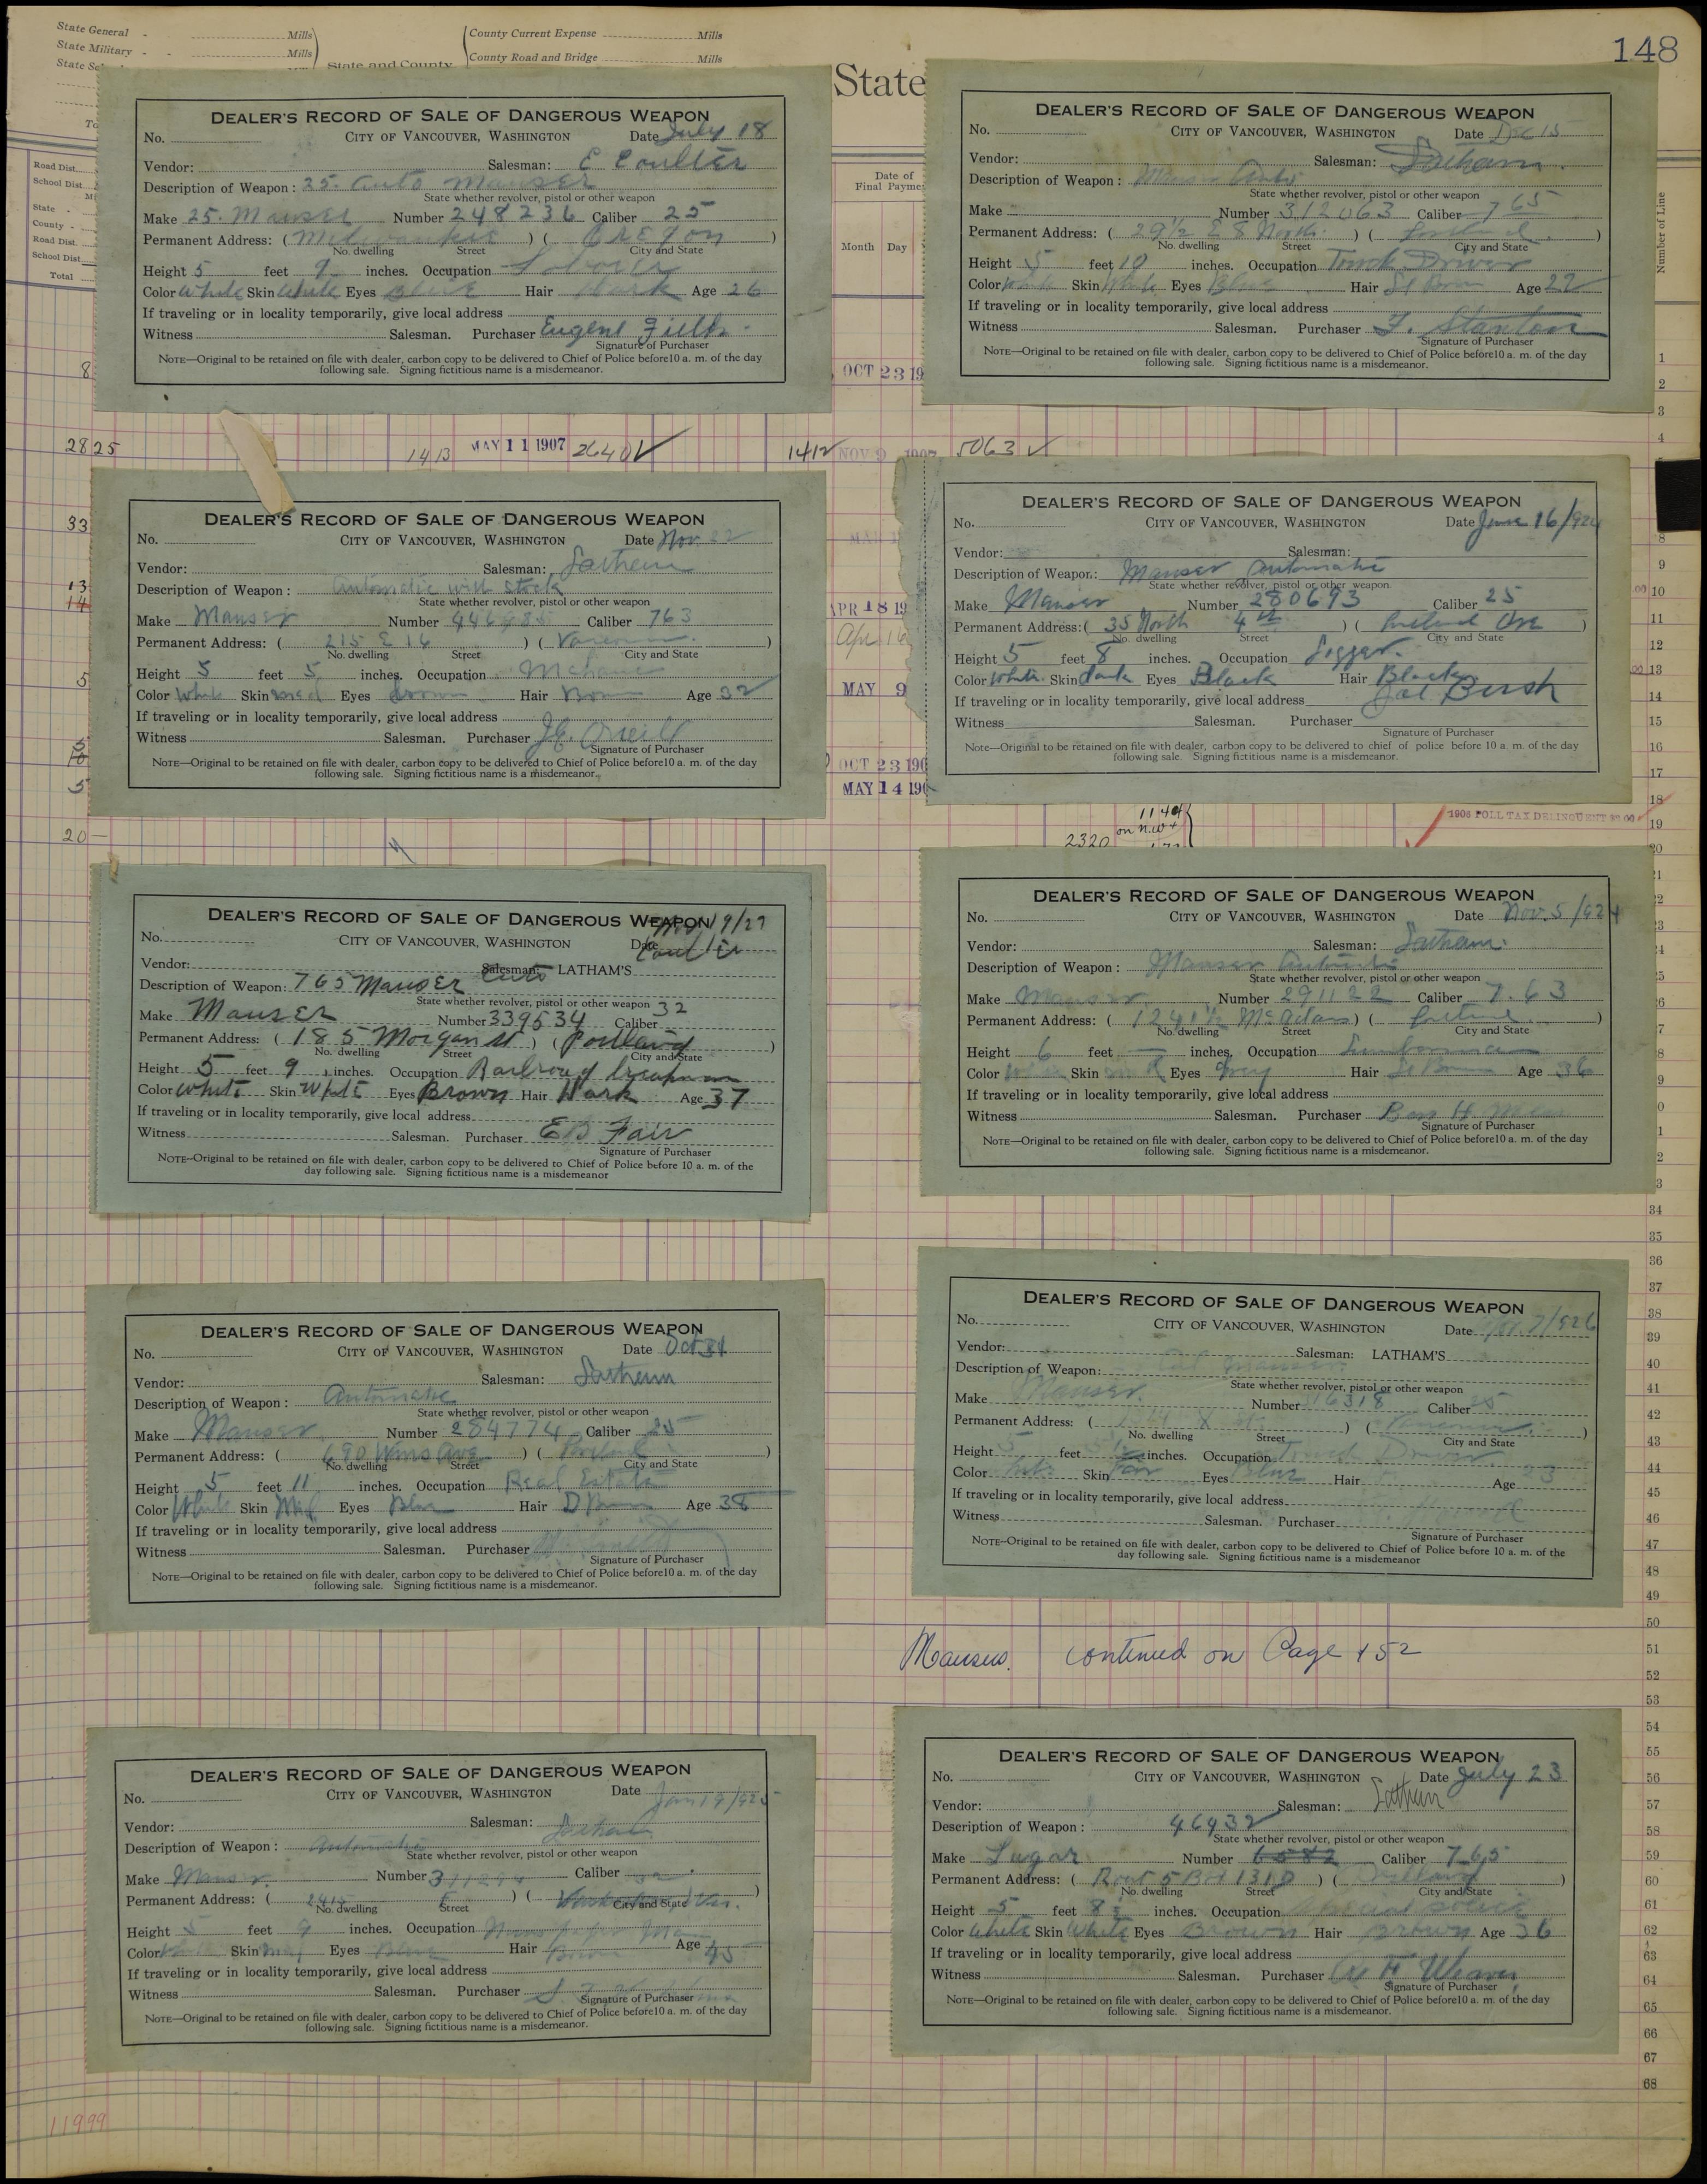 148
State General - Mills
State Military - - Mills
State and County
County Current Expense Mills
County Road and Bridge Mills
State
Road Dist.
School Dist.
State -
County -
Road Dist.
School Dist.
Total
Date of
Final Payme
Month Day
Number of Line
DEALER'S RECORD OF SALE OF DANGEROUS WEAPON
No. CITY OF VANCOUVER, WASHINGTON Date July 18
Vendor: Salesman: E Coulter
Description of Weapon: 25. Auto Mauser
State whether revolver, pistol or other weapon
Make 25. Mauser Number 248236 Caliber 25
Permanent Address: (Milwaukie) (OREGON)
No. dwelling Street City and State
Height 5 feet 9 inches. Occupation Laborer
Color White Skin White Eyes Blue Hair Dark Age 26
If traveling or in locality temporarily, give local address
Witness Salesman. Purchaser Eugene Fields
Signature of Purchaser
NOTE—Original to be retained on file with dealer, carbon copy to be delivered to Chief of Police before 10 a. m. of the day
following sale. Signing fictitious name is a misdemeanor.
DEALER'S RECORD OF SALE OF DANGEROUS WEAPON
No. CITY OF VANCOUVER, WASHINGTON Date Dec 15
Vendor: Salesman: Latham.
Description of Weapon: Mauser Auto
State whether revolver, pistol or other weapon
Make Number 312063 Caliber 7 65
Permanent Address: (29½ E 8 North.) (Portland.)
No. dwelling Street City and State
Height 5 feet 10 inches. Occupation Truck Driver
Color White Skin White Eyes Blue Hair Age 22
If traveling or in locality temporarily, give local address
Witness Salesman. Purchaser F. Stanton
Signature of Purchaser
NOTE—Original to be retained on file with dealer, carbon copy to be delivered to Chief of Police before 10 a. m. of the day
following sale. Signing fictitious name is a misdemeanor.
OCT 23 19
2825 1413 MAY 11 1907 2640 1412 NOV 9 1907 5063
DEALER'S RECORD OF SALE OF DANGEROUS WEAPON
No. CITY OF VANCOUVER, WASHINGTON Date Nov. 22
Vendor: Salesman: Lathem
Description of Weapon: Automatic with stock
State whether revolver, pistol or other weapon
Make Mauser Number Caliber 763
Permanent Address: (215 E 16) (Vancouver.)
No. dwelling Street City and State
Height 5 feet 5 inches. Occupation Mchanic
Color White Skin Med Eyes brown Hair Age 32
If traveling or in locality temporarily, give local address
Witness Salesman. Purchaser J.E. Oneill
Signature of Purchaser
NOTE—Original to be retained on file with dealer, carbon copy to be delivered to Chief of Police before 10 a. m. of the day
following sale. Signing fictitious name is a misdemeanor.
DEALER'S RECORD OF SALE OF DANGEROUS WEAPON
No. CITY OF VANCOUVER, WASHINGTON Date June 16/924
Vendor: Salesman:
Description of Weapon: Mauser Automatic
State whether revolver, pistol or other weapon
Make Mauser Number 280693 Caliber 25
Permanent Address: (35 North 4th) (Portland Ore)
No. dwelling Street City and State
Height 5 feet 8 inches. Occupation Logger.
Color White. Skin dark Eyes Black Hair Black
If traveling or in locality temporarily, give local address Joe Bush
Witness Salesman. Purchaser
Signature of Purchaser
Note—Original to be retained on file with dealer, carbon copy to be delivered to chief of police before 10 a. m. of the day
following sale. Signing fictitious name is a misdemeanor.
APR 18 19
Apr 16
MAY 9
OCT 23 190
MAY 14 190
1906 POLL TAX DELINQUENT
1140
on N.W +
2320
20
DEALER'S RECORD OF SALE OF DANGEROUS WEAPON
No. CITY OF VANCOUVER, WASHINGTON Date 19/27
Coulter
Vendor: Salesman: LATHAM'S
Description of Weapon: 765 Mauser Auto
State whether revolver, pistol or other weapon
Make Mauser Number 339534 Caliber 32
Permanent Address: (185 Morgan st) (Portland)
No. dwelling Street City and State
Height 5 feet 9 inches. Occupation Railroad
Color White Skin White Eyes Brown Hair Dark Age 37
If traveling or in locality temporarily, give local address
Witness Salesman. Purchaser E B Fair
Signature of Purchaser
NOTE—Original to be retained on file with dealer, carbon copy to be delivered to Chief of Police before 10 a. m. of the
day following sale. Signing fictitious name is a misdemeanor
DEALER'S RECORD OF SALE OF DANGEROUS WEAPON
No. CITY OF VANCOUVER, WASHINGTON Date Nov. 5/924
Vendor: Salesman: Latham.
Description of Weapon: Mauser Automatic
State whether revolver, pistol or other weapon
Make Mauser Number 291122 Caliber 7.63
Permanent Address: (1241½ McAdam) (Portland.)
No. dwelling Street City and State
Height 6 feet — inches. Occupation Lumberman
Color White Skin Eyes Grey Hair Age 36
If traveling or in locality temporarily, give local address
Witness Salesman. Purchaser Ben H
Signature of Purchaser
NOTE—Original to be retained on file with dealer, carbon copy to be delivered to Chief of Police before 10 a. m. of the day
following sale. Signing fictitious name is a misdemeanor.
DEALER'S RECORD OF SALE OF DANGEROUS WEAPON
No. CITY OF VANCOUVER, WASHINGTON Date Oct 31
Vendor: Salesman: Lathem
Description of Weapon: Automatic
State whether revolver, pistol or other weapon
Make Mauser Number 284774 Caliber 25
Permanent Address: (690 Wms Ave) (Portland)
No. dwelling Street City and State
Height 5 feet 11 inches. Occupation Real Estate
Color White Skin Med Eyes Blue Hair D Brown Age 38
If traveling or in locality temporarily, give local address
Witness Salesman. Purchaser
Signature of Purchaser
NOTE—Original to be retained on file with dealer, carbon copy to be delivered to Chief of Police before 10 a. m. of the day
following sale. Signing fictitious name is a misdemeanor.
DEALER'S RECORD OF SALE OF DANGEROUS WEAPON
No. CITY OF VANCOUVER, WASHINGTON Date 7/926
Vendor: Salesman: LATHAM'S
Description of Weapon: Cal Mauser
State whether revolver, pistol or other weapon
Make Mauser. Number 316318 Caliber 25
Permanent Address: ( ) (Vancouver.)
No. dwelling Street City and State
Height 5 feet inches. Occupation Truck Driver
Color White Skin Fair Eyes Blue Hair Age 23
If traveling or in locality temporarily, give local address
Witness Salesman. Purchaser
Signature of Purchaser
NOTE—Original to be retained on file with dealer, carbon copy to be delivered to Chief of Police before 10 a. m. of the
day following sale. Signing fictitious name is a misdemeanor
Mausers. contined on Page 152
DEALER'S RECORD OF SALE OF DANGEROUS WEAPON
No. CITY OF VANCOUVER, WASHINGTON Date Jan 19/925
Vendor: Salesman: Latham
Description of Weapon: Automatic
State whether revolver, pistol or other weapon
Make Mauser. Number Caliber 32
Permanent Address: (2415 E) (Washington Van.)
No. dwelling Street City and State
Height 5 feet 9 inches. Occupation News paper Man
Color Skin Med Eyes Blue Hair Brown Age 45
If traveling or in locality temporarily, give local address
Witness Salesman. Purchaser
Signature of Purchaser
NOTE—Original to be retained on file with dealer, carbon copy to be delivered to Chief of Police before 10 a. m. of the day
following sale. Signing fictitious name is a misdemeanor.
DEALER'S RECORD OF SALE OF DANGEROUS WEAPON
No. CITY OF VANCOUVER, WASHINGTON Date July 23
Vendor: Salesman: Lathem
Description of Weapon: 46932
State whether revolver, pistol or other weapon
Make Lugar Number 6582 Caliber 765
Permanent Address: (Rout 5 Box 1310) (Portland)
No. dwelling Street City and State
Height 5 feet 8½ inches. Occupation Special Police
Color White Skin White Eyes Brown Hair Brown Age 36
If traveling or in locality temporarily, give local address
Witness Salesman. Purchaser F Weaver
Signature of Purchaser
NOTE—Original to be retained on file with dealer, carbon copy to be delivered to Chief of Police before 10 a. m. of the day
following sale. Signing fictitious name is a misdemeanor.
11999